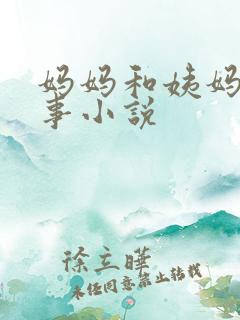 妈妈和姨妈
事小说
徐立晔
未经同意禁止转载